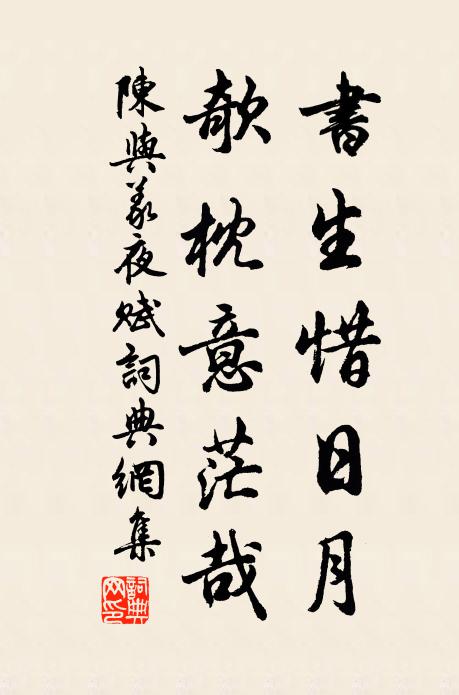 書生惜日月
欹枕意茫哉
陳與義夜賦詞典網集
詞典网印